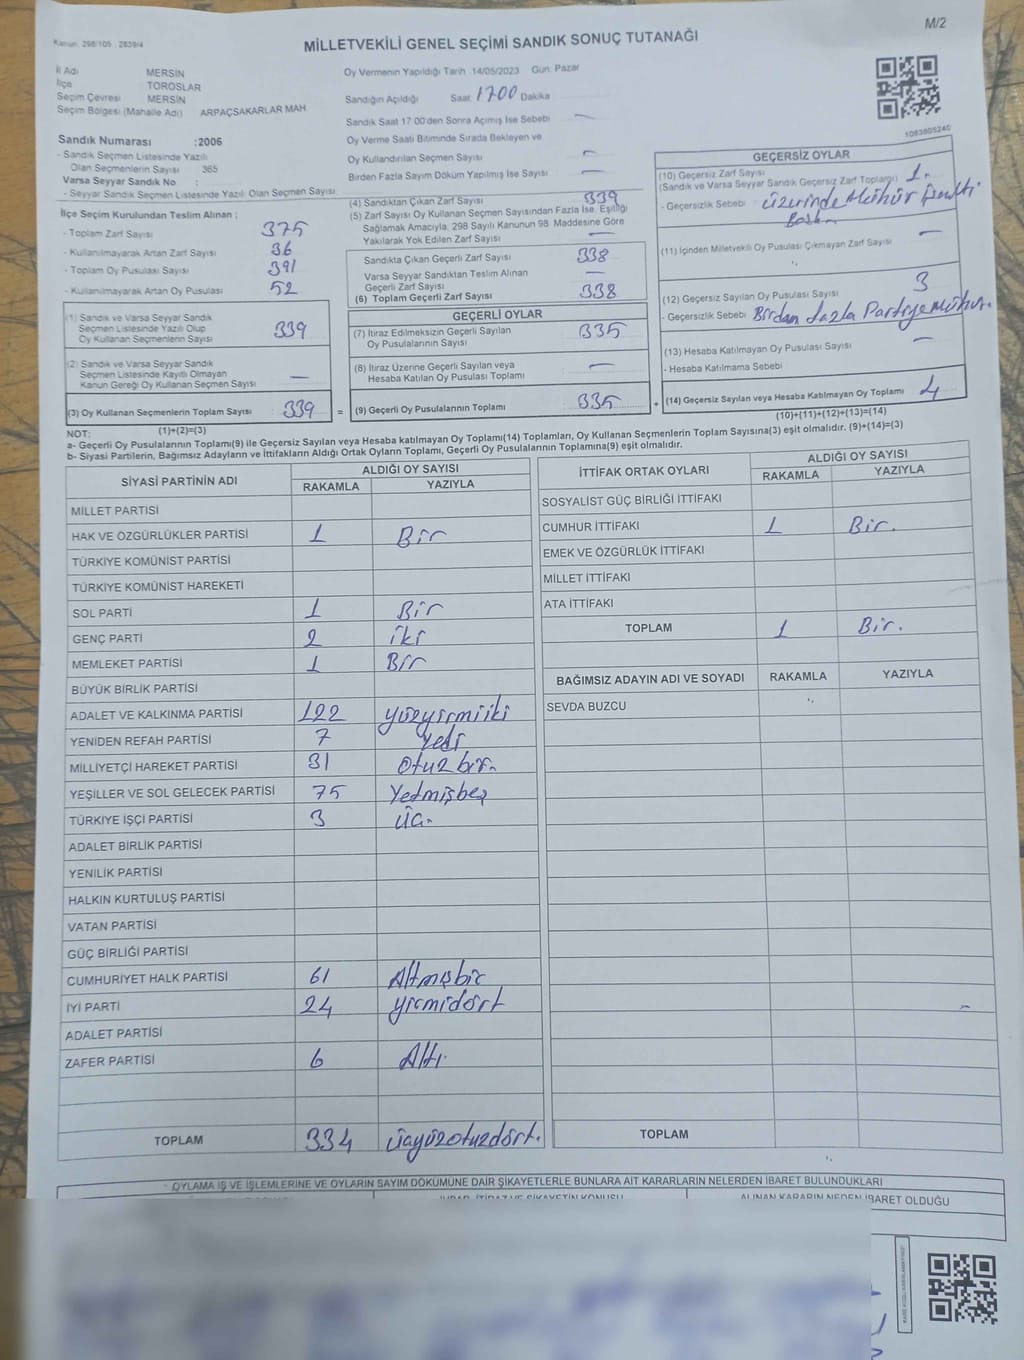 M/2
Kanun: 298/105 : 2839/4
MİLLETVEKİLİ GENEL SEÇİMİ SANDIK SONUÇ TUTANAĞI
İl Adı MERSİN
İlçe TOROSLAR
Seçim Çevresi MERSİN
Seçim Bölgesi (Mahalle Adı) ARPAÇSAKARLAR MAH
Sandık Numarası :2006
- Sandık Seçmen Listesinde Yazılı
Olan Seçmenlerin Sayısı 365
Varsa Seyyar Sandık No :
- Seyyar Sandık Seçmen Listesinde Yazılı Olan Seçmen Sayısı
Oy Vermenin Yapıldığı Tarih :14/05/2023 Gün: Pazar
Sandığın Açıldığı Saat: 1700 Dakika
Sandık Saat 17:00'den Sonra Açımış İse Sebebi
Oy Verme Saati Bitiminde Sırada Bekleyen ve
Oy Kullandırılan Seçmen Sayısı —
Birden Fazla Sayım Döküm Yapılmış İse Sayısı —
1083605240
İlçe Seçim Kurulundan Teslim Alınan ;
- Toplam Zarf Sayısı 375
- Kullanılmayarak Artan Zarf Sayısı 36
- Toplam Oy Pusulası Sayısı 391
- Kullanılmayarak Artan Oy Pusulası 52
(1) Sandık ve Varsa Seyyar Sandık
Seçmen Listesinde Yazılı Olup
Oy Kullanan Seçmenlerin Sayısı 339
(2) Sandık ve Varsa Seyyar Sandık
Seçmen Listesinde Kayıtlı Olmayan
Kanun Gereği Oy Kullanan Seçmen Sayısı —
(3) Oy Kullanan Seçmenlerin Toplam Sayısı 339 =
(1)+(2)=(3)
(4) Sandıktan Çıkan Zarf Sayısı 339
(5) Zarf Sayısı Oy Kullanan Seçmen Sayısından Fazla İse, Eşitliği
Sağlamak Amacıyla, 298 Sayılı Kanunun 98. Maddesine Göre
Yakılarak Yok Edilen Zarf Sayısı —
Sandıkta Çıkan Geçerli Zarf Sayısı 338
Varsa Seyyar Sandıktan Teslim Alınan
Geçerli Zarf Sayısı —
(6) Toplam Geçerli Zarf Sayısı 338
GEÇERLİ OYLAR
(7) İtiraz Edilmeksizin Geçerli Sayılan
Oy Pusulalarının Sayısı 335
(8) İtiraz Üzerine Geçerli Sayılan veya
Hesaba Katılan Oy Pusulası Toplamı —
(9) Geçerli Oy Pusulalarının Toplamı 335 +
GEÇERSİZ OYLAR
(10) Geçersiz Zarf Sayısı
(Sandık ve Varsa Seyyar Sandık Geçersiz Zarf Toplamı) 1.
- Geçersizlik Sebebi : üzerinde Mühür
(11) İçinden Milletvekili Oy Pusulası Çıkmayan Zarf Sayısı —
(12) Geçersiz Sayılan Oy Pusulası Sayısı 3
- Geçersizlik Sebebi Birden fazla Partiye Mühür.
(13) Hesaba Katılmayan Oy Pusulası Sayısı —
- Hesaba Katılmama Sebebi
(14) Geçersiz Sayılan veya Hesaba Katılmayan Oy Toplamı 4
(10)+(11)+(12)+(13)=(14)
NOT:
a- Geçerli Oy Pusulalarının Toplamı(9) ile Geçersiz Sayılan veya Hesaba katılmayan Oy Toplamı(14) Toplamları, Oy Kullanan Seçmenlerin Toplam Sayısına(3) eşit olmalıdır. (9)+(14)=(3)
b- Siyasi Partilerin, Bağımsız Adayların ve İttifakların Aldığı Ortak Oyların Toplamı, Geçerli Oy Pusulalarının Toplamına(9) eşit olmalıdır.
SİYASİ PARTİNİN ADI ALDIĞI OY SAYISI
RAKAMLA YAZIYLA
MİLLET PARTİSİ
HAK VE ÖZGÜRLÜKLER PARTİSİ 1 Bir
TÜRKİYE KOMÜNİST PARTİSİ
TÜRKİYE KOMÜNİST HAREKETİ
SOL PARTİ 1 Bir
GENÇ PARTİ 2 iki
MEMLEKET PARTİSİ 1 Bir
BÜYÜK BİRLİK PARTİSİ
ADALET VE KALKINMA PARTİSİ 122 yüzyirmiiki
YENİDEN REFAH PARTİSİ 7 Yedi
MİLLİYETÇİ HAREKET PARTİSİ 31 Otuzbir.
YEŞİLLER VE SOL GELECEK PARTİSİ 75 Yetmişbeş
TÜRKİYE İŞÇİ PARTİSİ 3 üç.
ADALET BİRLİK PARTİSİ
YENİLİK PARTİSİ
HALKIN KURTULUŞ PARTİSİ
VATAN PARTİSİ
GÜÇ BİRLİĞİ PARTİSİ
CUMHURİYET HALK PARTİSİ 61 Altmışbir
İYİ PARTİ 24 yirmidört
ADALET PARTİSİ
ZAFER PARTİSİ 6 Altı.
TOPLAM 334 üçyüzotuzdört.
İTTİFAK ORTAK OYLARI ALDIĞI OY SAYISI
RAKAMLA YAZIYLA
SOSYALİST GÜÇ BİRLİĞİ İTTİFAKI
CUMHUR İTTİFAKI 1 Bir.
EMEK VE ÖZGÜRLÜK İTTİFAKI
MİLLET İTTİFAKI
ATA İTTİFAKI
TOPLAM 1 Bir.
BAĞIMSIZ ADAYIN ADI VE SOYADI RAKAMLA YAZIYLA
SEVDA BUZCU
TOPLAM
OYLAMA İŞ VE İŞLEMLERİNE VE OYLARIN SAYIM DÖKÜMÜNE DAİR ŞİKAYETLERLE BUNLARA AİT KARARLARIN NELERDEN İBARET BULUNDUKLARI
ALINAN KARARIN NEDEN İBARET OLDUĞU